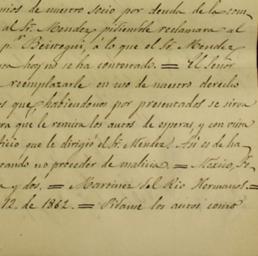 nios de nuestro socio por deuda de la com
al Sr. Mendez pidiendo reclamara al
pr. Beistegui, á lo que el Sr. Mendez
na hoy no se ha contestado. = El Señor
reemplazarle en uso de nuestro derecho
s que habiendonos por presentados se sirva
ra que le remita los autos de esperas y con vista
icio que le dirigió el Sr. Mendez. Asi es de ha
rando no proceder de malicia. = Mexico, Fe
a y dos. = Martinez del Rio Hermanos. =
12. de 1862. = Pidanse los autos como